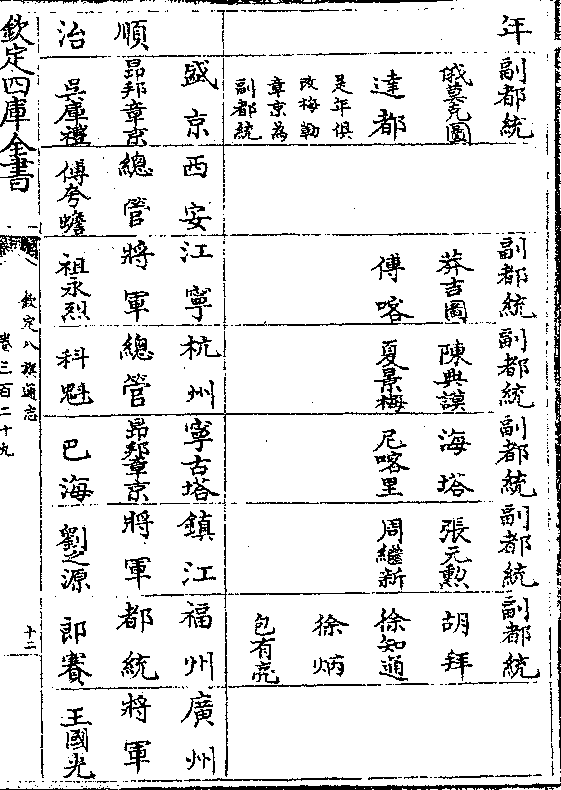 年 副都統 副都統 副都統 副都統 副都統 副都統
哦莫克圖 莽吉圖 陳典謨 海塔 張元勲 胡拜
達都 傅喀 夏景梅 尼喀里 周繼新 徐知通
是年俱
改梅勒
章京為
副都統
徐炳
包有亮
盛京 西安 江寧 杭州 寧古塔 鎮江 福州 廣州
順 昂邦章京 總管 將軍 總管 昂邦章京 將軍 都統 將軍
治 吳庫禮 傅夸蟾 祖永烈 科魁 巴海 劉之源 郎賽 王國光
欽定四庫全書
欽定八旗通志
卷三百二十九
十二